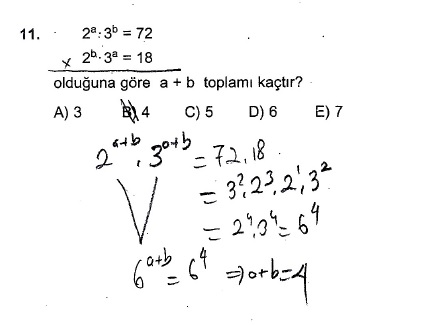 11. 2ᵃ·3ᵇ = 72
x 2ᵇ·3ᵃ = 18
olduğuna göre a + b toplamı kaçtır?
A) 3 B) 4 C) 5 D) 6 E) 7
2ᵃ⁺ᵇ · 3ᵃ⁺ᵇ = 72.18
= 3².2³.2¹.3²
= 2⁴.3⁴ = 6⁴
6ᵃ⁺ᵇ = 6⁴ ⇒ a+b=4